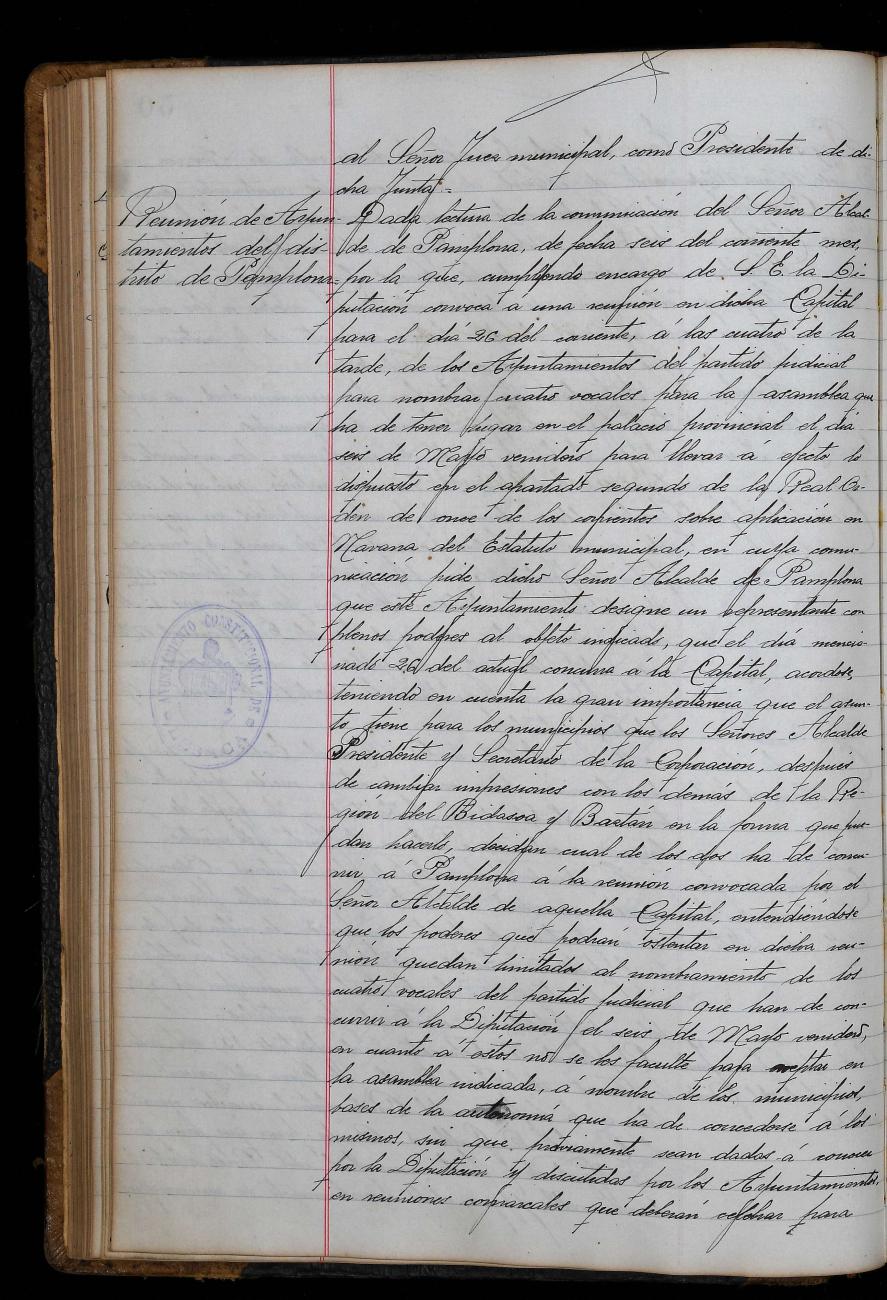 al Señor Juez municipal, como Presidente de di-
cha Junta.=
Reunión de Ayun-
tamientos del dis-
trito de Pamplona=
Dada lectura de la comunicación del Señor Alcal-
de de Pamplona, de fecha seis del corriente mes,
por la que, cumpliendo encargo de S. E. la Di-
putación convoca á una reunión en dicha Capital
para el día 26 del corriente, á las cuatro de la
tarde, de los Ayuntamientos del partido judicial
para nombrar cuatro vocales para la asamblea que
ha de tener lugar en el palacio provincial el día
seis de Mayo venidero para llevar á efecto lo
dispuesto en el apartado segundo de la Real Or-
den de once de los corrientes sobre aplicación en
Navarra del Estatuto municipal, en cuya comu-
nicación pide dicho Señor Alcalde de Pamplona
que este Ayuntamiento designe un representante con
plenos poderes al objeto indicado, que el día mencio-
nado 26 del actual concurra á la Capital, acordose,
teniendo en cuenta la gran importancia que el asun-
to tiene para los municipios que los Señores Alcalde
Presidente y Secretario de la Corporación, después
de cambiar impresiones con los demás de la Re-
gión del Bidasoa y Baztán en la forma que pue-
dan hacerlo, decidan cual de los dos ha de concu-
rrir á Pamplona á la reunión convocada por el
Señor Alcalde de aquella Capital, entendiéndose
que los poderes que podrán ostentar en dicha reu-
nión quedan limitados al nombramiento de los
cuatro vocales del partido judicial que han de con-
currir á la Diputación el seis de Mayo venidero,
en cuanto á estos no se les faculte para aceptar en
la asamblea indicada, á nombre de los municipios,
bases de la autonomía que ha de concederse á los
mismos, sin que previamente sean dadas á conocer
por la Diputación y discutidas por los Ayuntamientos,
en reuniones comarcales que deberán celebrar para
AYUNTAMIENTO CONSTITUCIONAL DE